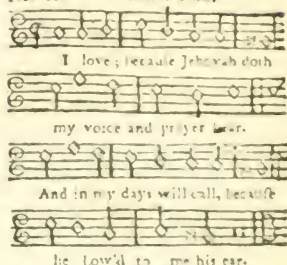 I love; because Jehovah doth
my voice and prayer hear.
And in my days will call, because
he bow'd to me his ear.